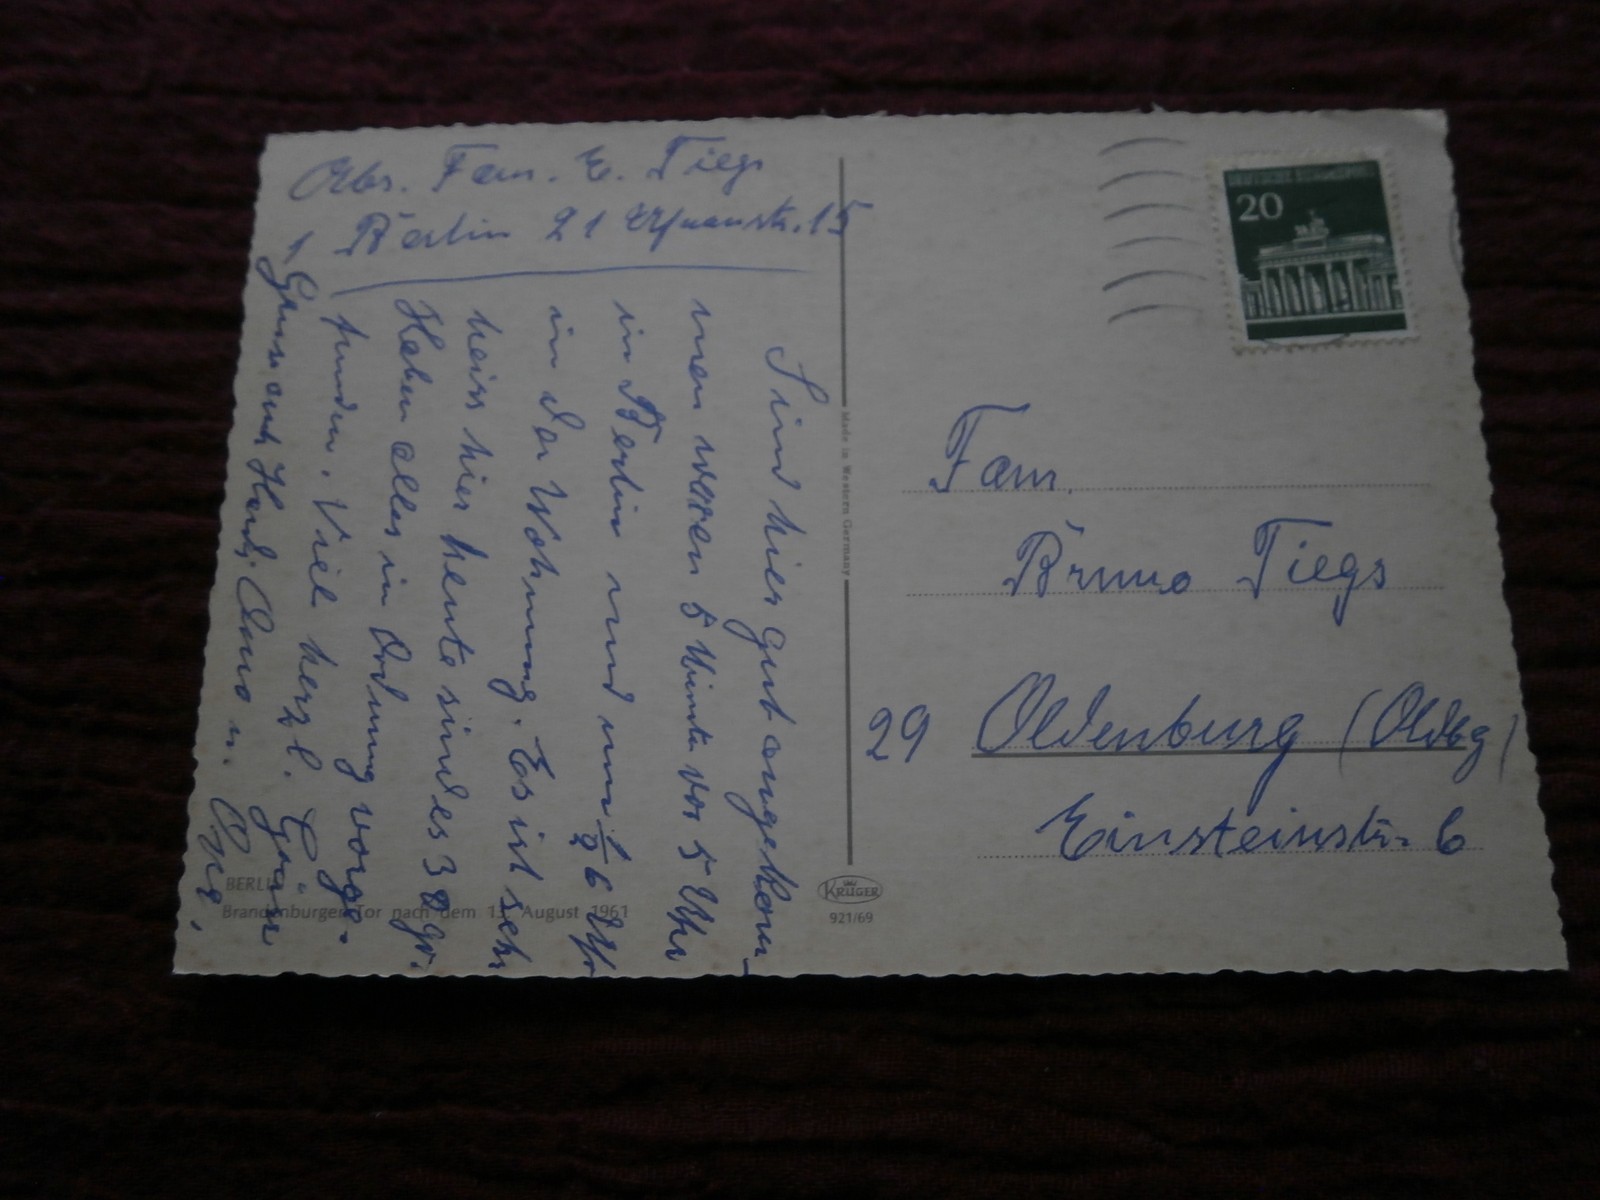 Abs. Fam. E. Tiegs
Berlin 21 15
Sind hier gut angekom-
men waren 5 Minute vor 5 Uhr
in Berlin und um 1/2 6 Uhr
in der Wohnung. Es ist sehr
heiss hier heute sind es 30 gr.
Haben alles in Ordnung vorge-
funden. Viel herzl. Grüsse
u.
BERLIN
Brandenburger Tor nach dem 13. August 1961
Made in Western Germany
KRÜGER
921/69
DEUTSCHE BUNDESPOST
20
Fam.
Bruno Tiegs
29 Oldenburg (Oldbg)
Einsteinstr. 6